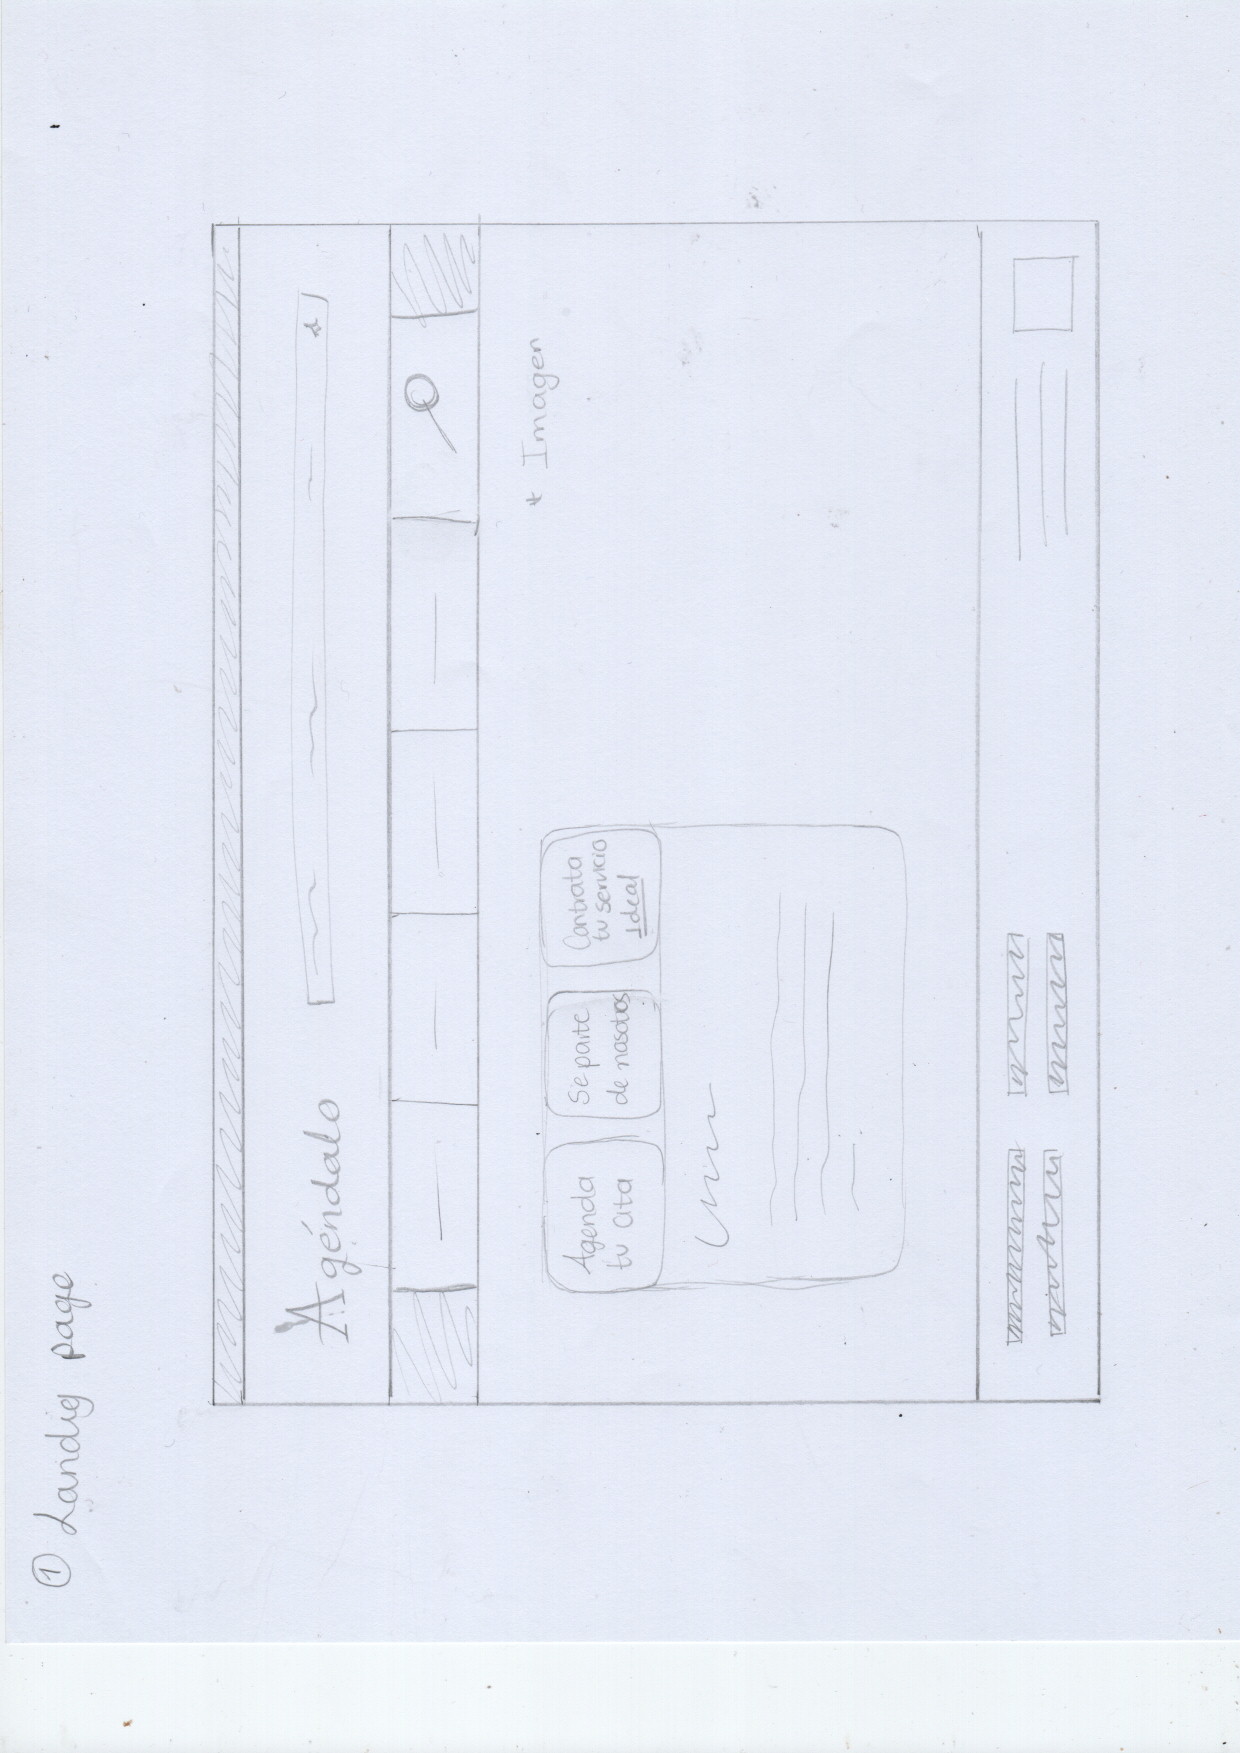 1 Landig page
Agéndalo
* Imagen
Agenda
tu cita
Se parte
de nosotros
Contrata
tu servicio
Ideal